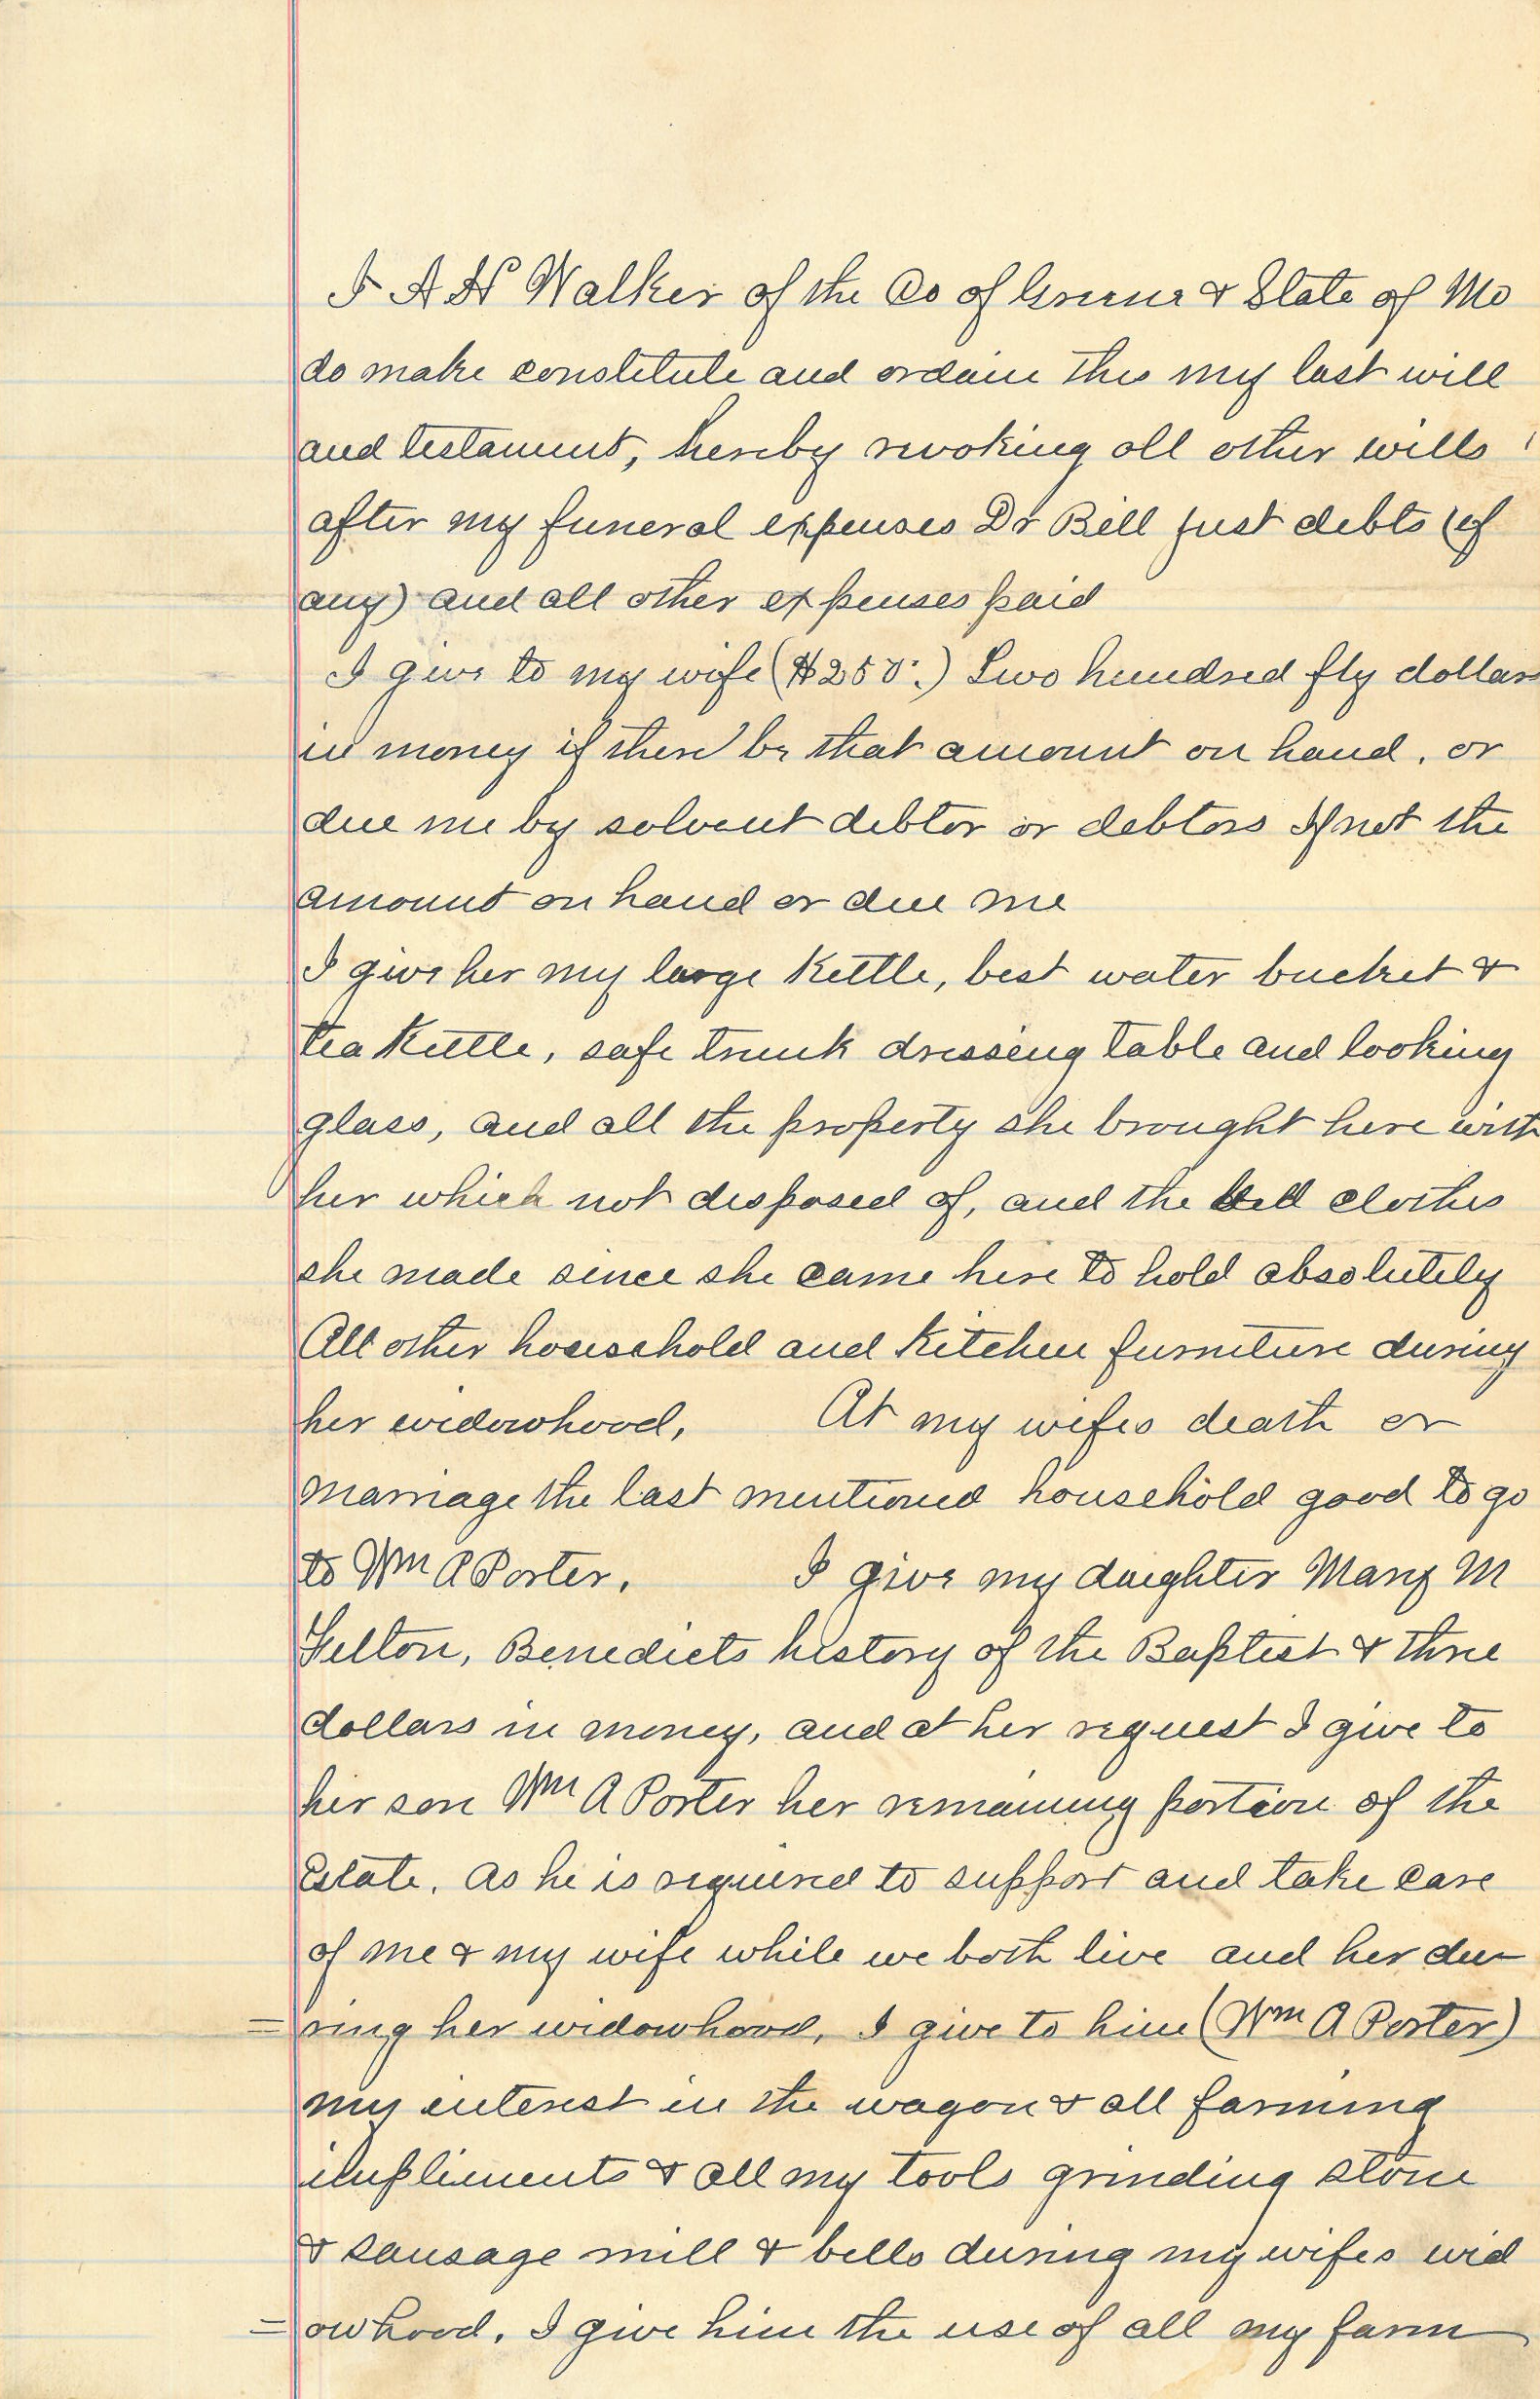 I A H Walker of the Co of Greene & State of Mo
do make constitute and ordain this my last will
and testament, hereby revoking all other wills
after my funeral expenses Dr Bill just debts (if
any) and all other expenses paid
I give to my wife ($250.) Two hundred fly dollars
in money if there be that amount on hand, or
due me by solvent debtor or debtors If not the
amount on hand or due me
I give her my large Kettle, best water bucket &
tea Kettle, safe trunk dressing table and looking
glass, and all the property she brought here with
her which not disposed of, and the bed clothes
she made since she came here to hold absolutely
All other household and Kitchen furniture during
her widowhood, At my wifes death or
marriage the last mentioned household good to go
to Wm A Porter. I give my daughter Mary M
Felton, Benedicts history of the Baptist & three
dollars in money, and at her request I give to
her son Wm A Porter her remaining portion of the
Estate. As he is required to support and take care
of me & my wife while we both live and her du
=ring her widowhood, I give to him (Wm A Porter)
my interest in the wagon & all farming
impliments & all my tools grinding stone
& sausage mill & bells during my wifes wid
=owhood. I give him the use of all my farm